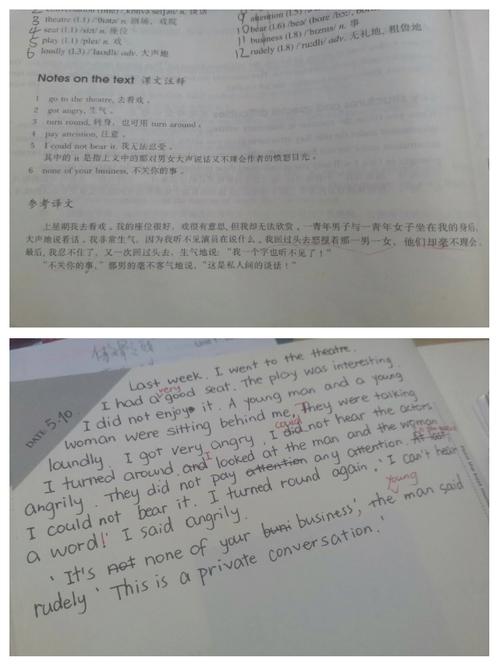 2 conversation n. 谈话
3 theatre (l.1) /'θɪətə/ n. 剧场,戏院
4 seat (l.1) /siːt/ n. 座位
5 play (l.1) /pleɪ/ n. 戏
6 loudly (l.3) /'laʊdli/ adv. 大声地
9 attention (l.5)
10 bear (l.6) /beə/ (bore /bɔː/,
11 business (l.8) /'bɪznɪs/ n. 事
12 rudely (l.8) /'ruːdli/ adv. 无礼地,粗俗地
Notes on the text 课文注释
1 go to the theatre, 去看戏。
2 got angry, 生气。
3 turn round, 转身,也可用 turn around。
4 pay attention, 注意。
5 I could not bear it. 我无法忍受。
其中的 it 是指上文中的那对男女大声说话又不理会作者的愤怒目光。
6 none of your business, 不关你的事。
参考译文
上星期我去看戏。我的座位很好,戏很有意思,但我却无法欣赏。一青年男子与一青年女子坐在我的身后,
大声地说着话。我非常生气,因为我听不见演员在说什么。我回过头去怒视着那一男一女,他们却毫不理会。
最后,我忍不住了,又一次回过头去,生气地说:“我一个字也听不见了!”
“不关你的事,”那男的毫不客气地说,“这是私人间的谈话!”
DATE 5.10
Last week. I went to the theatre.
I had a very good seat. The play was interesting.
I did not enjoy it. A young man and a young
woman were sitting behind me, They were talking
loundly. I got very angry. I could did not hear the actors
I turned around. and I looked at the man and the woman
angrily. They did not pay attention any attention. At last,
I could not bear it. I turned round again. 'I can't hear
a word!' I said angrily.
'It's not none of your busi business', the young man said
rudely 'This is a private conversation.'